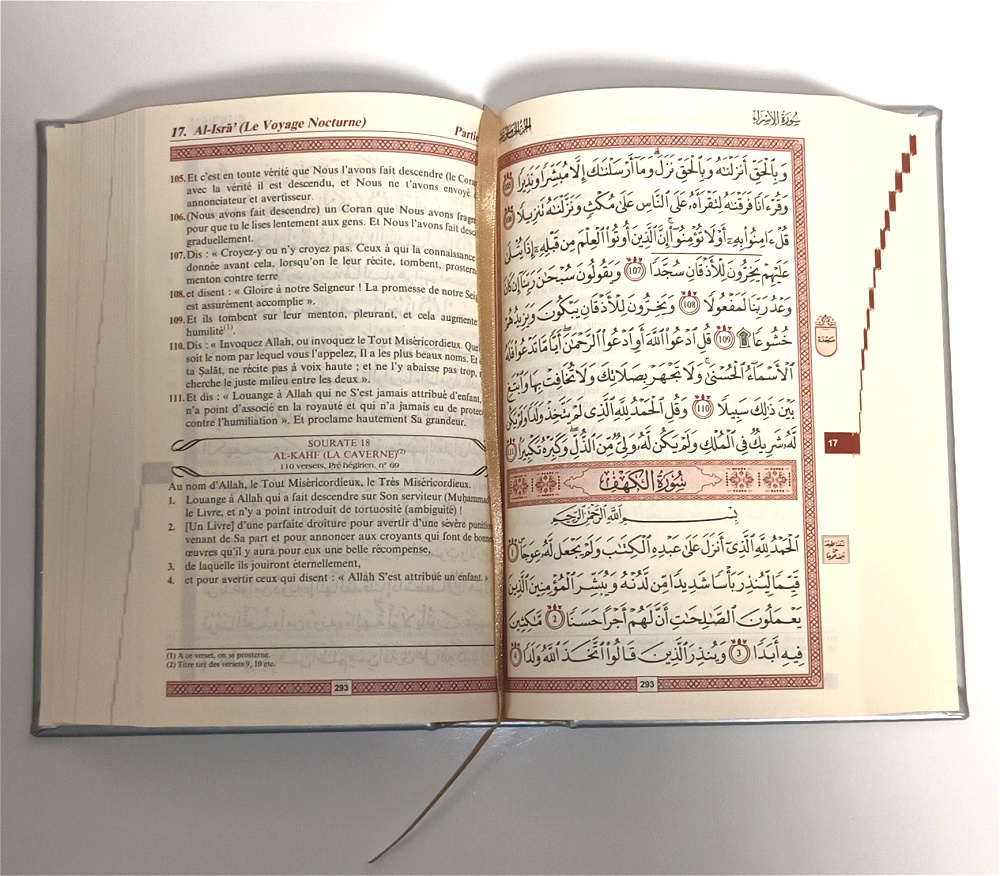 17. Al-Isrā' (Le Voyage Nocturne)
105. Et c'est en toute vérité que Nous l'avons fait descendre (le
avec la vérité il est descendu, et Nous ne t'avons envoyé
annonciateur et avertisseur.
106. (Nous avons fait descendre) un Coran que Nous avons
pour que tu le lises lentement aux gens. Et Nous l'avons fait
graduellement.
107. Dis : « Croyez-y ou n'y croyez pas. Ceux à qui la connaissance
donnée avant cela, lorsqu'on le leur récite, tombent,
menton contre terre
108. et disent : « Gloire à notre Seigneur ! La promesse de notre
est assurément accomplie ».
109. Et ils tombent sur leur menton, pleurant, et cela augmente
humilité(1).
110. Dis : « Invoquez Allah, ou invoquez le Tout Miséricordieux.
soit le nom par lequel vous l'appelez, Il a les plus beaux noms. Et
ta Ṣalāt, ne récite pas à voix haute ; et ne l'y abaisse pas trop,
cherche le juste milieu entre les deux ».
111. Et dis : « Louange à Allah qui ne S'est jamais attribué d'enfant,
n'a point d'associé en la royauté et qui n'a jamais eu de
contre l'humiliation ». Et proclame hautement Sa grandeur.
SOURATE 18
AL-KAHF (LA CAVERNE)(2)
110 versets, Pré hégirien, n° 69
Au nom d'Allah, le Tout Miséricordieux, le Très Miséricordieux.
1. Louange à Allah qui a fait descendre sur Son serviteur
le Livre, et n'y a point introduit de tortuosité (ambiguïté) !
2. [Un Livre] d'une parfaite droiture pour avertir d'une sévère
venant de Sa part et pour annoncer aux croyants qui font de
œuvres qu'il y aura pour eux une belle récompense,
3. de laquelle ils jouiront éternellement,
4. et pour avertir ceux qui disent : « Allāh S'est attribué un enfant. »
(1) A ce verset, on se prosterne.
(2) Titre tiré des versets 9, 10 etc.
293
سُورَةُ الإِسْرَاءِ
وَبِٱلْحَقِّ أَنزَلْنَٰهُ وَبِٱلْحَقِّ نَزَلَ ۗ وَمَآ أَرْسَلْنَٰكَ إِلَّا مُبَشِّرًا وَنَذِيرًا 105
وَقُرْءَانًا فَرَقْنَٰهُ لِتَقْرَأَهُۥ عَلَى ٱلنَّاسِ عَلَىٰ مُكْثٍ وَنَزَّلْنَٰهُ تَنزِيلًا 106
قُلْ ءَامِنُوا۟ بِهِۦٓ أَوْ لَا تُؤْمِنُوٓا۟ ۚ إِنَّ ٱلَّذِينَ أُوتُوا۟ ٱلْعِلْمَ مِن قَبْلِهِۦٓ إِذَا يُتْلَىٰ
عَلَيْهِمْ يَخِرُّونَ لِلْأَذْقَانِ سُجَّدًا 107 وَيَقُولُونَ سُبْحَٰنَ رَبِّنَآ إِن كَانَ
وَعْدُ رَبِّنَا لَمَفْعُولًا 108 وَيَخِرُّونَ لِلْأَذْقَانِ يَبْكُونَ وَيَزِيدُهُمْ
خُشُوعًا ۩ 109 قُلِ ٱدْعُوا۟ ٱللَّهَ أَوِ ٱدْعُوا۟ ٱلرَّحْمَٰنَ ۖ أَيًّا مَّا تَدْعُوا۟ فَلَهُ
ٱلْأَسْمَآءُ ٱلْحُسْنَىٰ ۚ وَلَا تَجْهَرْ بِصَلَاتِكَ وَلَا تُخَافِتْ بِهَا وَٱبْتَغِ
بَيْنَ ذَٰلِكَ سَبِيلًا 110 وَقُلِ ٱلْحَمْدُ لِلَّهِ ٱلَّذِى لَمْ يَتَّخِذْ وَلَدًا وَلَمْ يَكُن
لَّهُۥ شَرِيكٌ فِى ٱلْمُلْكِ وَلَمْ يَكُن لَّهُۥ وَلِىٌّ مِّنَ ٱلذُّلِّ ۖ وَكَبِّرْهُ تَكْبِيرًۢا 111
سُورَةُ الكَهْفِ
بِسْمِ ٱللَّهِ ٱلرَّحْمَٰنِ ٱلرَّحِيمِ
ٱلْحَمْدُ لِلَّهِ ٱلَّذِىٓ أَنزَلَ عَلَىٰ عَبْدِهِ ٱلْكِتَٰبَ وَلَمْ يَجْعَل لَّهُۥ عِوَجَا 1
قَيِّمًا لِّيُنذِرَ بَأْسًا شَدِيدًا مِّن لَّدُنْهُ وَيُبَشِّرَ ٱلْمُؤْمِنِينَ ٱلَّذِينَ
يَعْمَلُونَ ٱلصَّٰلِحَٰتِ أَنَّ لَهُمْ أَجْرًا حَسَنًا 2 مَّٰكِثِينَ
فِيهِ أَبَدًا 3 وَيُنذِرَ ٱلَّذِينَ قَالُوا۟ ٱتَّخَذَ ٱللَّهُ وَلَدًا 4
293
سَجْدَة
17